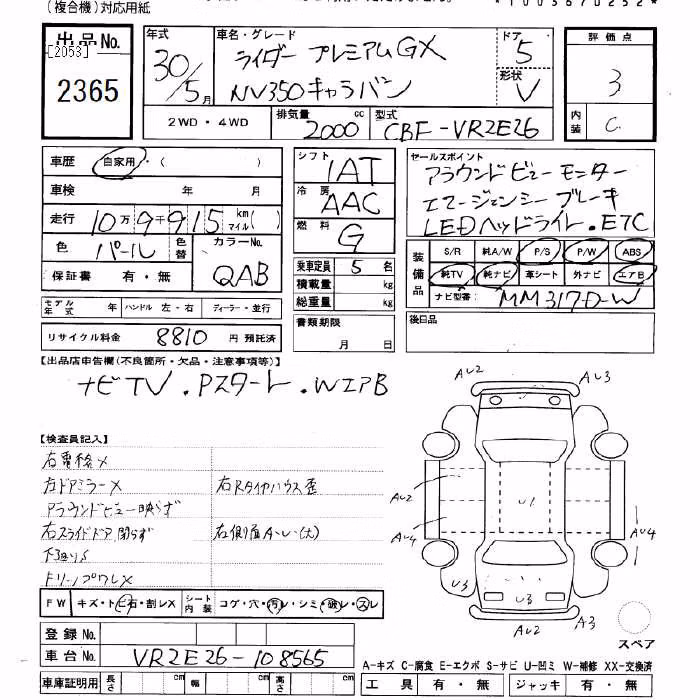 (複合機)対応用紙
出品No.
[2053]
2365
年式
30/5月
車名・グレード
ライダー プレミアムGX
NV350キャラバン
ドア
5
形状
V
評価点
3
内装
C
2WD・4WD
排気量
2000 cc
型式
CBF-VR2E26
車歴 自家用・( )
車検 年 月
走行 10万9千915 km マイル( )
色 パール 色替 カラーNo.
QAB
保証書 有・無
モデル年式 年 ハンドル 左・右 ディーラー・並行
リサイクル料金 8810 円 預託済
シフト IAT
冷房 AAC
燃料 G
乗車定員 5 名
積載量 kg
総重量 kg
書類期限
月 日
セールスポイント
アラウンドビューモニター
エマージェンシーブレーキ
LEDヘッドライト.ETC
装備品
S/R 純A/W P/S P/W ABS
純TV 純ナビ 革シート 外ナビ エアB
ナビ型番: MM317D-W
後日品
【出品店申告欄(不良箇所・欠品・注意事項等)】
ナビTV.Pスタート.WエアB
【検査員記入】
右電格×
右ドアミラー×
アラウンドビュー映らず
右スライドドア閉らず
下廻りS
ドリンプワレ×
右Rタイヤハウス歪
右側面A・U(大)
AU2
AU3
AU2
AU4
U1
AU4
U3
U3
AU2
A3
スペア
FW キズ・トビ石・割レX シート内装 コゲ・穴・汚レ・シミ・破レ・スレ
登録No.
車台No. VR2E26-108565
車庫証明用 長さ cm 幅 cm 高さ cm
A-キズ C-腐食 E-エクボ S-サビ U-凹ミ W-補修 XX-交換済
工具 有・無 ジャッキ 有・無